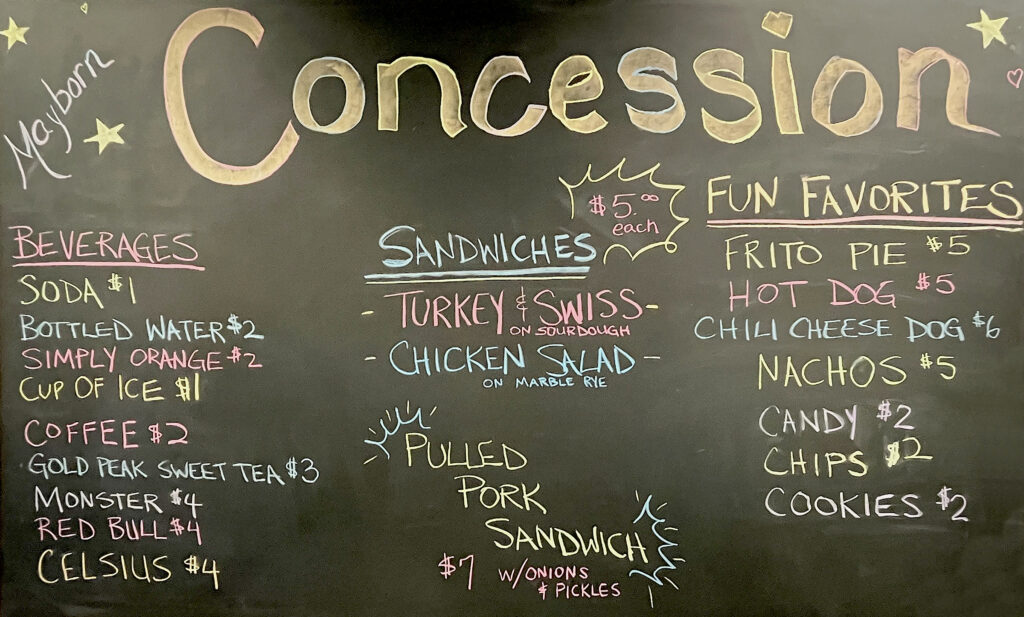 Mayborn
Concession
BEVERAGES
SODA $1
BOTTLED WATER $2
SIMPLY ORANGE $2
CUP OF ICE $1
COFFEE $2
GOLD PEAK SWEET TEA $3
MONSTER $4
RED BULL $4
CELSIUS $4
$5.00
each
SANDWICHES
- TURKEY & SWISS -
ON SOURDOUGH
- CHICKEN SALAD -
ON MARBLE RYE
PULLED
PORK
SANDWICH
$7 W/ONIONS
& PICKLES
FUN FAVORITES
FRITO PIE $5
HOT DOG $5
CHILI CHEESE DOG $6
NACHOS $5
CANDY $2
CHIPS $2
COOKIES $2